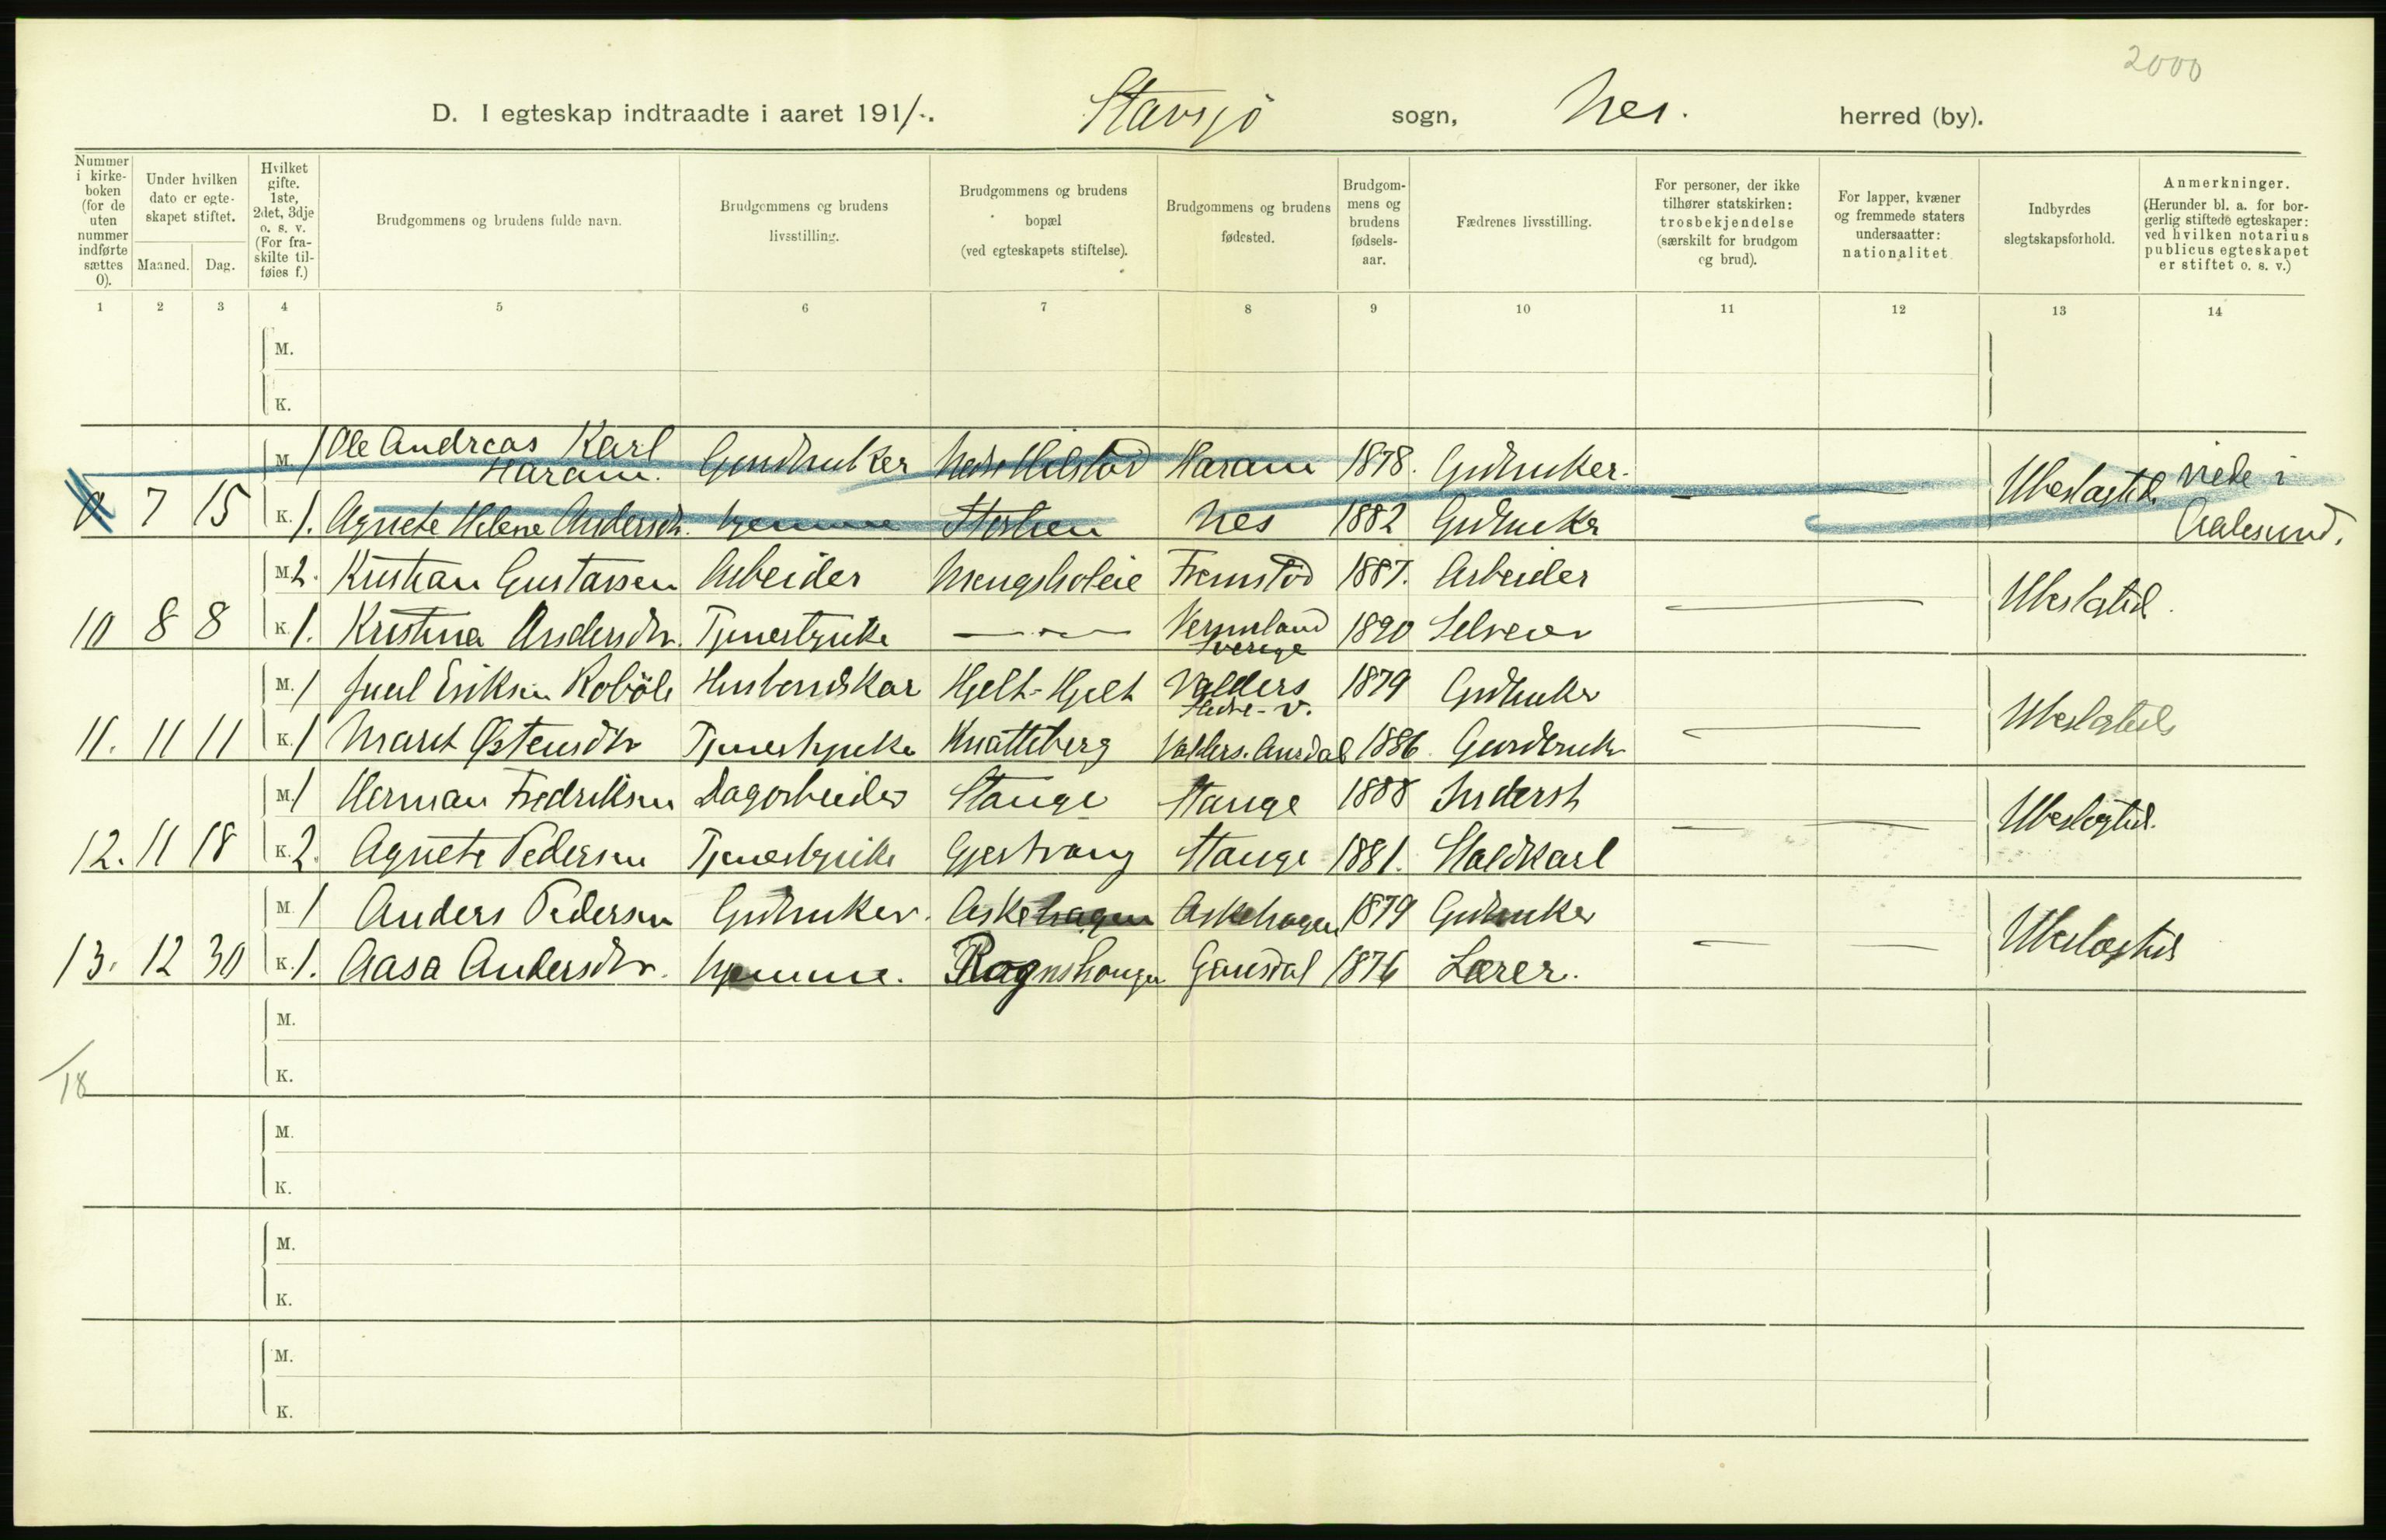 2000
D. I egteskap indtraadte i aaret 1911. Stavsjö sogn, Nes. herred (by).
Nummer i kirkeboken (for de uten nummer indførte sættes 0).
Under hvilken dato er egteskapet stiftet.
Maaned. Dag.
Hvilket gifte. 1ste, 2det, 3dje o. s. v. (For fraskilte tilføies f.)
Brudgommens og brudens fulde navn.
Brudgommens og brudens livsstilling.
Brudgommens og brudens bopæl (ved egteskapets stiftelse).
Brudgommens og brudens fødested.
Brudgommens og brudens fødselsaar.
Fædrenes livsstilling.
For personer, der ikke tilhører statskirken: trosbekjendelse (særskilt for brudgom og brud).
For lapper, kvæner og fremmede staters undersaatter: nationalitet
Indbyrdes slegtskapsforhold.
Anmerkninger. (Herunder bl. a. for borgerlig stiftede egteskaper: ved hvilken notarius publicus egteskapet er stiftet o. s. v.)
1 2 3 4 5 6 7 8 9 10 11 12 13 14
M.
K.
M. 1 Ole Andreas Karl Haram. Gardbruker Haram 1878. Gdbruker. — — Ubeslægted. viede i
7 15 K. 1. Agnete Helene Andersdtr. hjemme Nes 1882 Gdbruker Aalesund.
M. 2. Kristian Gustavsen Arbeider Mengsholeie 1887. Arbeider — — Ubeslgted.
10 8 8 K. 1. Kristina Andersdtr. Tjenestpike —„— Vermland Sverige 1890 Selveier
M. 1 Juul Eriksen Roböle Husbondskar Hjelt-Hjelt Valders Slidre-V. 1879 Gdbruker — — Ubeslgted
11. 11 11 K. 1 Marit Østensdtr Tjenestpike Knatteberg Valders. Aurdal 1886. Gardbruker
M. 1 Herman Fredriksen Dagarbeider Stange Stange 1888 Inderst — — Ubeslegted.
12. 11 18 K. 2. Agnete Pedersen Tjenestpike Gjestvang Stange 1881. Staldkarl
M. 1 Anders Pedersen Gdbruker. Askehagen Askehagen 1879 Gdbruker — — Ubeslægted
13. 12 30 K. 1. Aasa Andersdtr. hjemme. Gausdal 1876 Lærer.
M.
K.
18
M.
K.
M.
K.
M.
K.